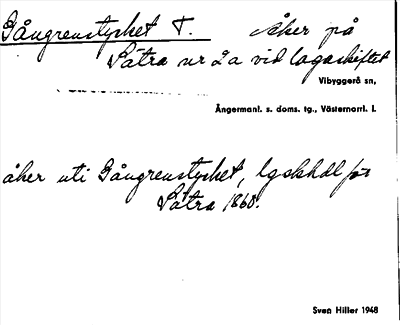 Gångrenstycket T. Åker på
Sätra nr 2a vid lagaskiftet
Vibyggerå sn,
Ångermanl. s. doms. tg., Västernorrl. l.
åker uti Gångrenstycket, lgskhdl för
Sätra 1860.
Sven Hiller 1948